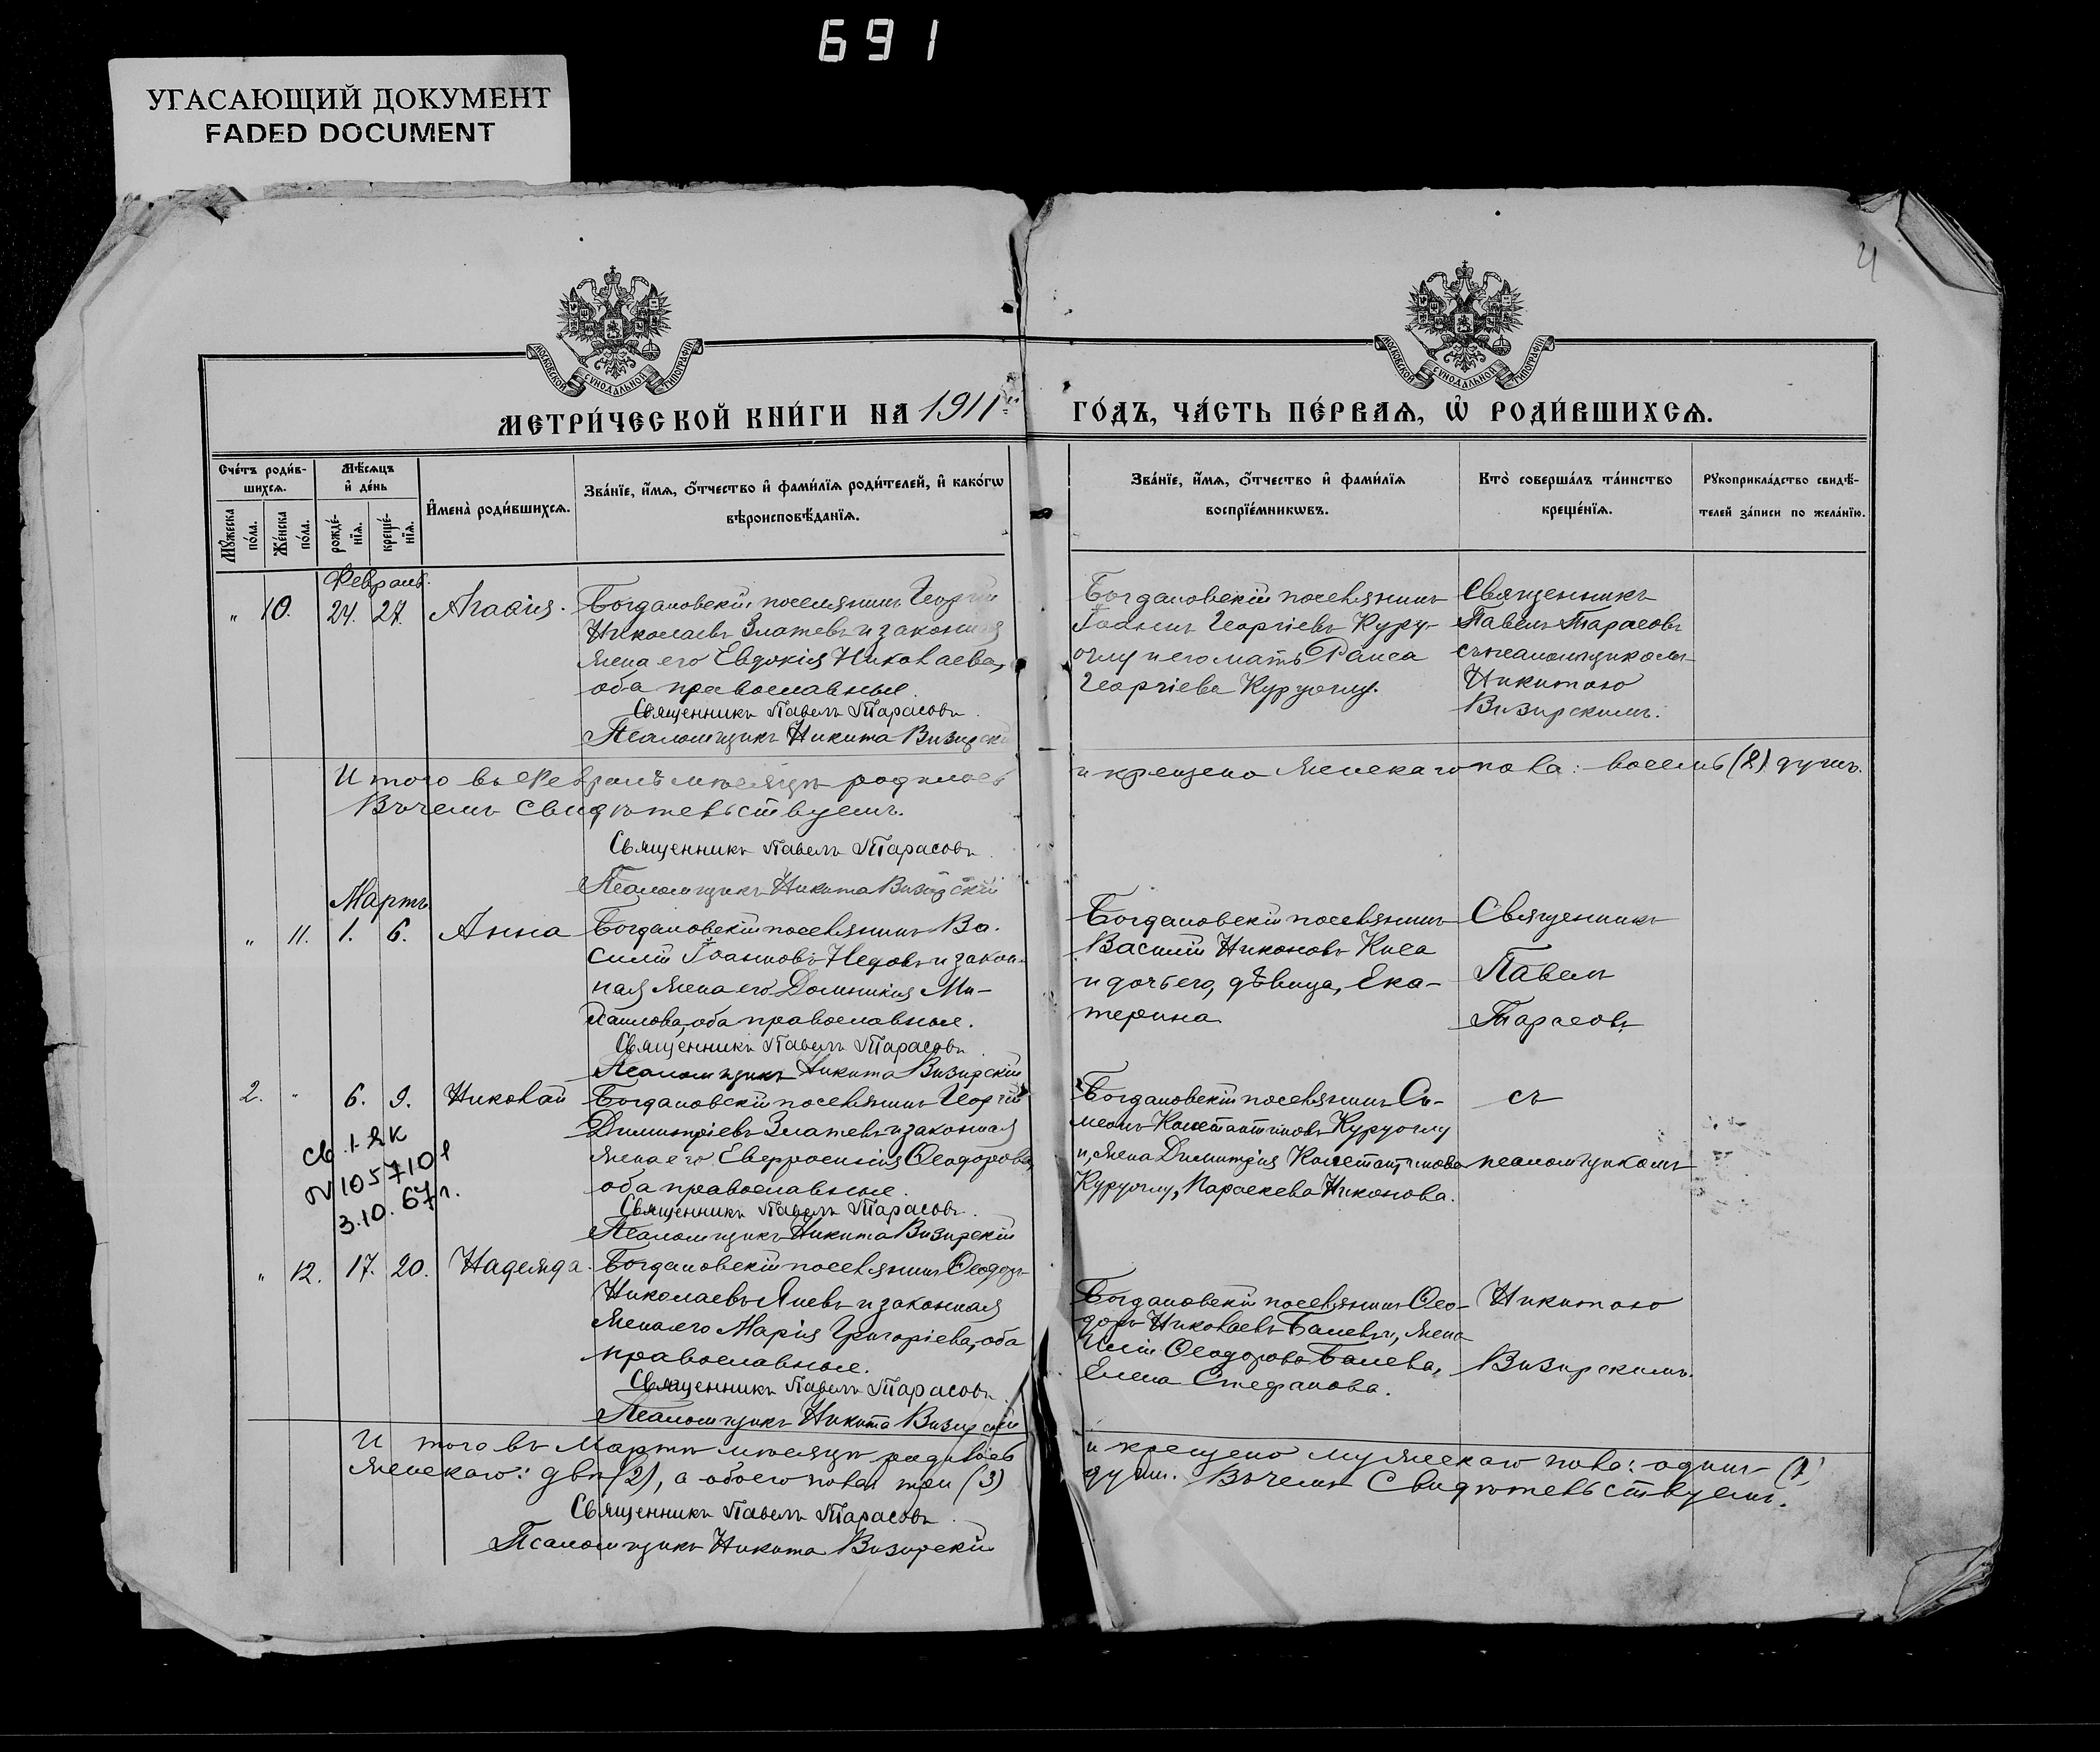 691
УГАСАЮЩИЙ ДОКУМЕНТ
FADED DOCUMENT
4
МОСКОВСКОЙ СѴНОДАЛЬНОЙ ТИПОГРАФІИ
МОСКОВСКОЙ СѴНОДАЛЬНОЙ ТИПОГРАФІИ
МЕТРИ́ЧЕСКОЙ КНИ́ГИ НА 1911й ГО́ДЪ, ЧА́СТЬ ПЕ́РВАѦ, Ѡ҆ РОДИ́ВШИХСѦ.
Сче́тъ роди́в-
шихсѧ.
Мꙋ́жеска по́ла.
Же́нска по́ла.
Мѣ́сѧцъ
и҆ де́нь
рожде́-
нїѧ.
креще́-
нїѧ.
И҆мена̀ роди́вшихсѧ.
Зва́нїе, и҆́мѧ, ѻ҆́тчество и҆ фами́лїѧ роди́телей, и҆ како́гѡ
вѣроисповѣ́данїѧ.
Зва́нїе, и҆́мѧ, ѻ҆́тчество и҆ фами́лїѧ
воспрїе́мникѡвъ.
Кто̀ соверша́лъ та́инство
креще́нїѧ.
Рꙋкоприкла́дство свидѣ́-
телей за́писи по жела́нїю.
Февраль.
" 10. 24. 27. Агаѳія.
Богдановскій поселянинъ Георгій
Николаевъ Златевъ и законная
жена его Евдокія Николаева,
оба православные.
Священникъ Павелъ Тарасовъ.
Псаломщикъ Никита Визирскій
Богдановскій поселянинъ
Іоаннъ Георгіевъ Куру-
оглу и его мать Раиса
Георгіева Куруоглу.
Священникъ
Павелъ Тарасовъ
съ псаломщикомъ
Никитою
Визирскимъ.
Итого въ Февралѣ мѣсяцѣ родилось и крещено женскаго пола: восемь (8) душъ.
Въ чемъ свидѣтельствуемъ.
Священникъ Павелъ Тарасовъ.
Псаломщикъ Никита Визирскій
Мартъ.
" 11. 1. 6. Анна
Богдановскій поселянинъ Ва-
силій Іоанновъ Недовъ и закон-
ная жена его Домникія Ми-
хаилова, оба православные.
Священникъ Павелъ Тарасовъ.
Псаломщикъ Никита Визирскій
Богдановскій поселянинъ
Василій Никоновъ Киса
и дочь его, дѣвица, Ека-
терина
Священникъ
Павелъ
Тарасовъ
2. " 6. 9. Николай
св. 1-ЯК
№ 1057101
3.10.67г.
Богдановскій поселянинъ Георгій
Димитріевъ Златевъ и законная
жена его Евфросинія Ѳеодорова,
оба православные.
Священникъ Павелъ Тарасовъ.
Псаломщикъ Никита Визирскій
Богдановскій поселянинъ Си-
меонъ Константиновъ Куруоглу
и, жена Димитрія Константинова
Куруоглу, Параскева Никонова.
съ
псаломщикомъ
" 12. 17. 20. Надежда.
Богдановскій поселянинъ Ѳеодоръ
Николаевъ Яневъ и законная
жена его Марія Григоріева, оба
православные.
Священникъ Павелъ Тарасовъ.
Псаломщикъ Никита Визирскій
Богдановскій поселянинъ Ѳео-
доръ Николаевъ Баневъ и, жена
Иліи Ѳеодорова Банева,
Елена Стефанова.
Никитою
Визирскимъ.
Итого въ Мартѣ мѣсяцѣ родилось и крещено мужескаго пола: одинъ (1)
женскаго: двѣ (2), а обоего пола три (3) души. Въ чемъ свидѣтельствуемъ.
Священникъ Павелъ Тарасовъ.
Псаломщикъ Никита Визирскій